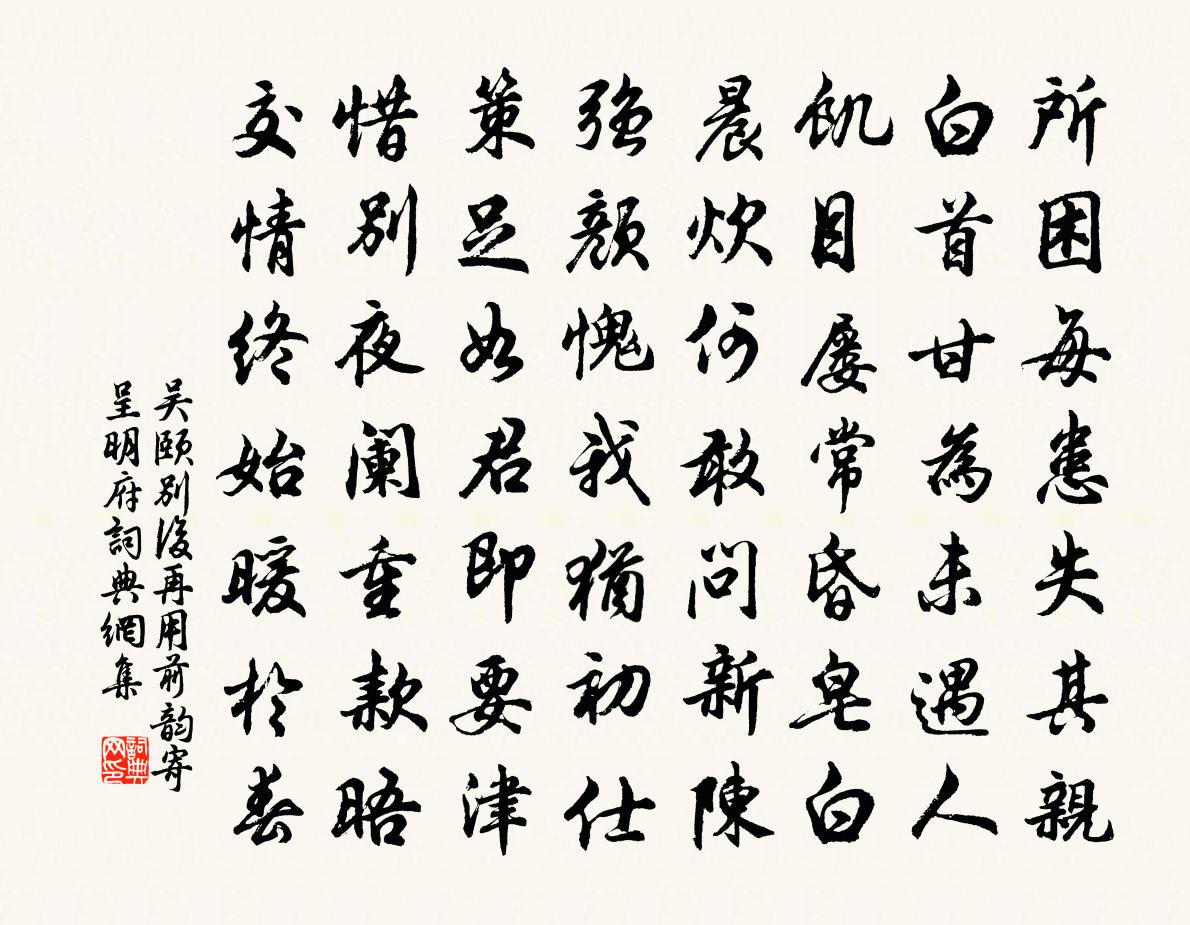 所困每患失其親
白首甘為未遇人
飢目屡常昏皂白
晨炊何敢問新陳
強顔愧我猶初仕
策足如君即要津
惜別夜阑重款晤
交情終始暖於春
吴颐别後再用前韵寄
呈明府詞典網集
詞典
网印